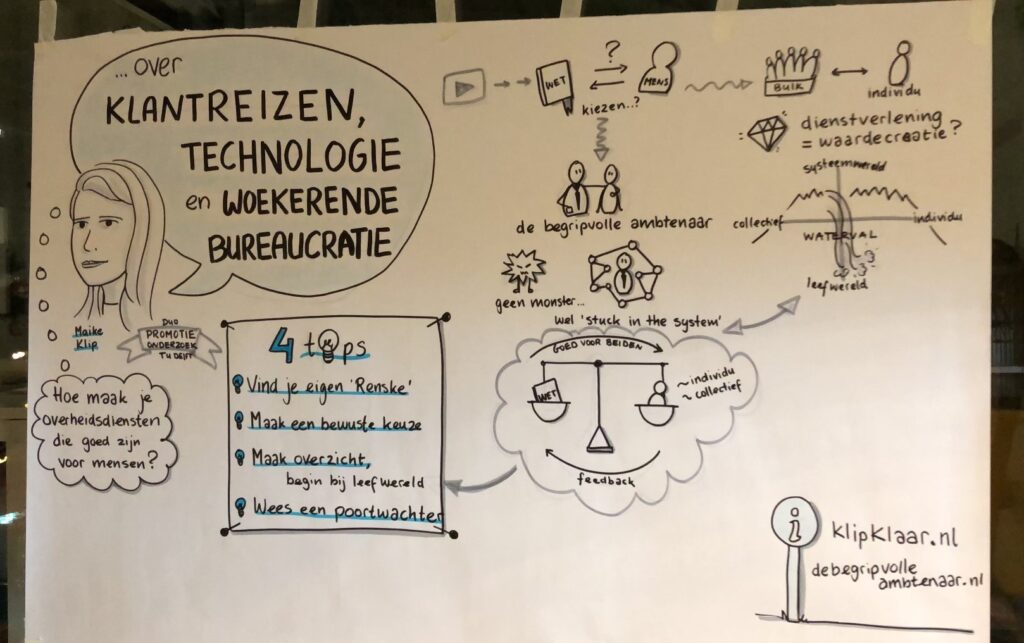 ... over
KLANTREIZEN,
TECHNOLOGIE
en WOEKERENDE
BUREAUCRATIE
Maike
Klip
DUO
PROMOTIE
ONDERZOEK
TU DELFT
Hoe maak je
overheidsdiensten
die goed zijn
voor mensen?
4 tips
Vind je eigen 'Renske'
Maak een bewuste keuze
Maak overzicht,
begin bij leefwereld
Wees een poortwachter
WET
?
MENS
kiezen..?
BULK
individu
dienstverlening
= waardecreatie?
de begripvolle ambtenaar
geen monster...
wel 'stuck in the system'
systeemwereld
collectief
individu
WATERVAL
leefwereld
GOED VOOR BEIDEN
WET
~ individu
~ collectief
feedback
i
KlipKlaar.nl
debegripvolle
ambtenaar.nl